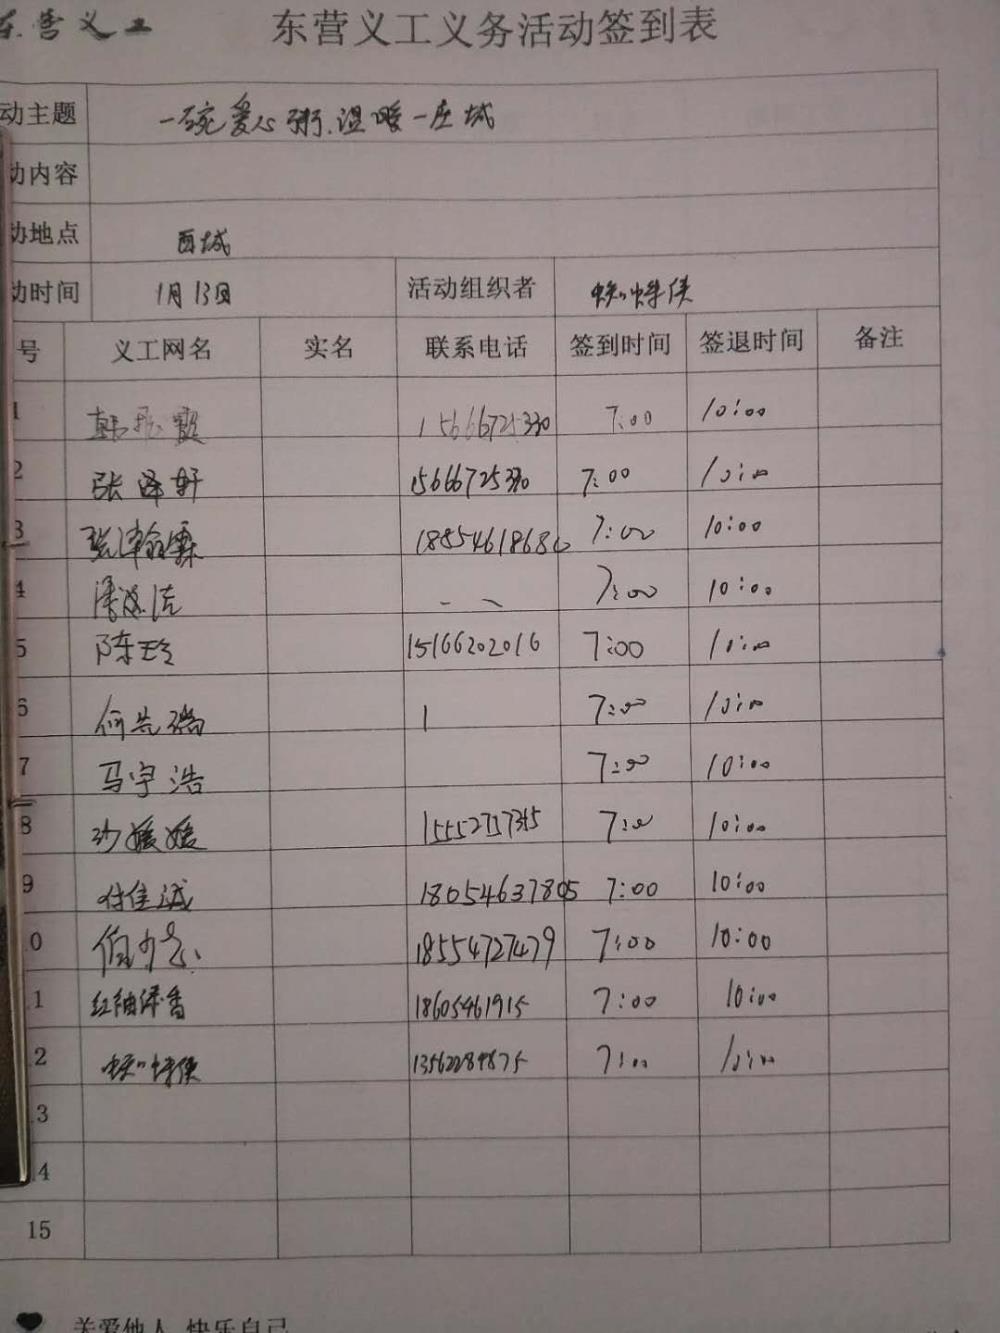 东营义工
东营义工义务活动签到表
动主题 一碗爱心粥.温暖一座城
动内容
动地点 西城
动时间 1月13日 活动组织者 蜘蛛侠
号 义工网名 实名 联系电话 签到时间 签退时间 备注
1 15666725330 7:00 10:00
2 张泽轩 15666725330 7:00 10:00
3 张泽翰霖 1885461868 7:00 10:00
4 洁 7:00 10:00
5 陈玲 15166202016 7:00 10:00
6 何先瑞 1 7:00 10:00
7 马宇浩 7:00 10:00
8 沙媛媛 7:00 10:00
9 付佳诚 18054637805 7:00 10:00
0 18554727479 7:00 10:00
1 红袖添香 18605461915 7:00 10:00
2 蜘蛛侠 13562289875 7:00 10:00
3
4
15
关爱他人 快乐自己